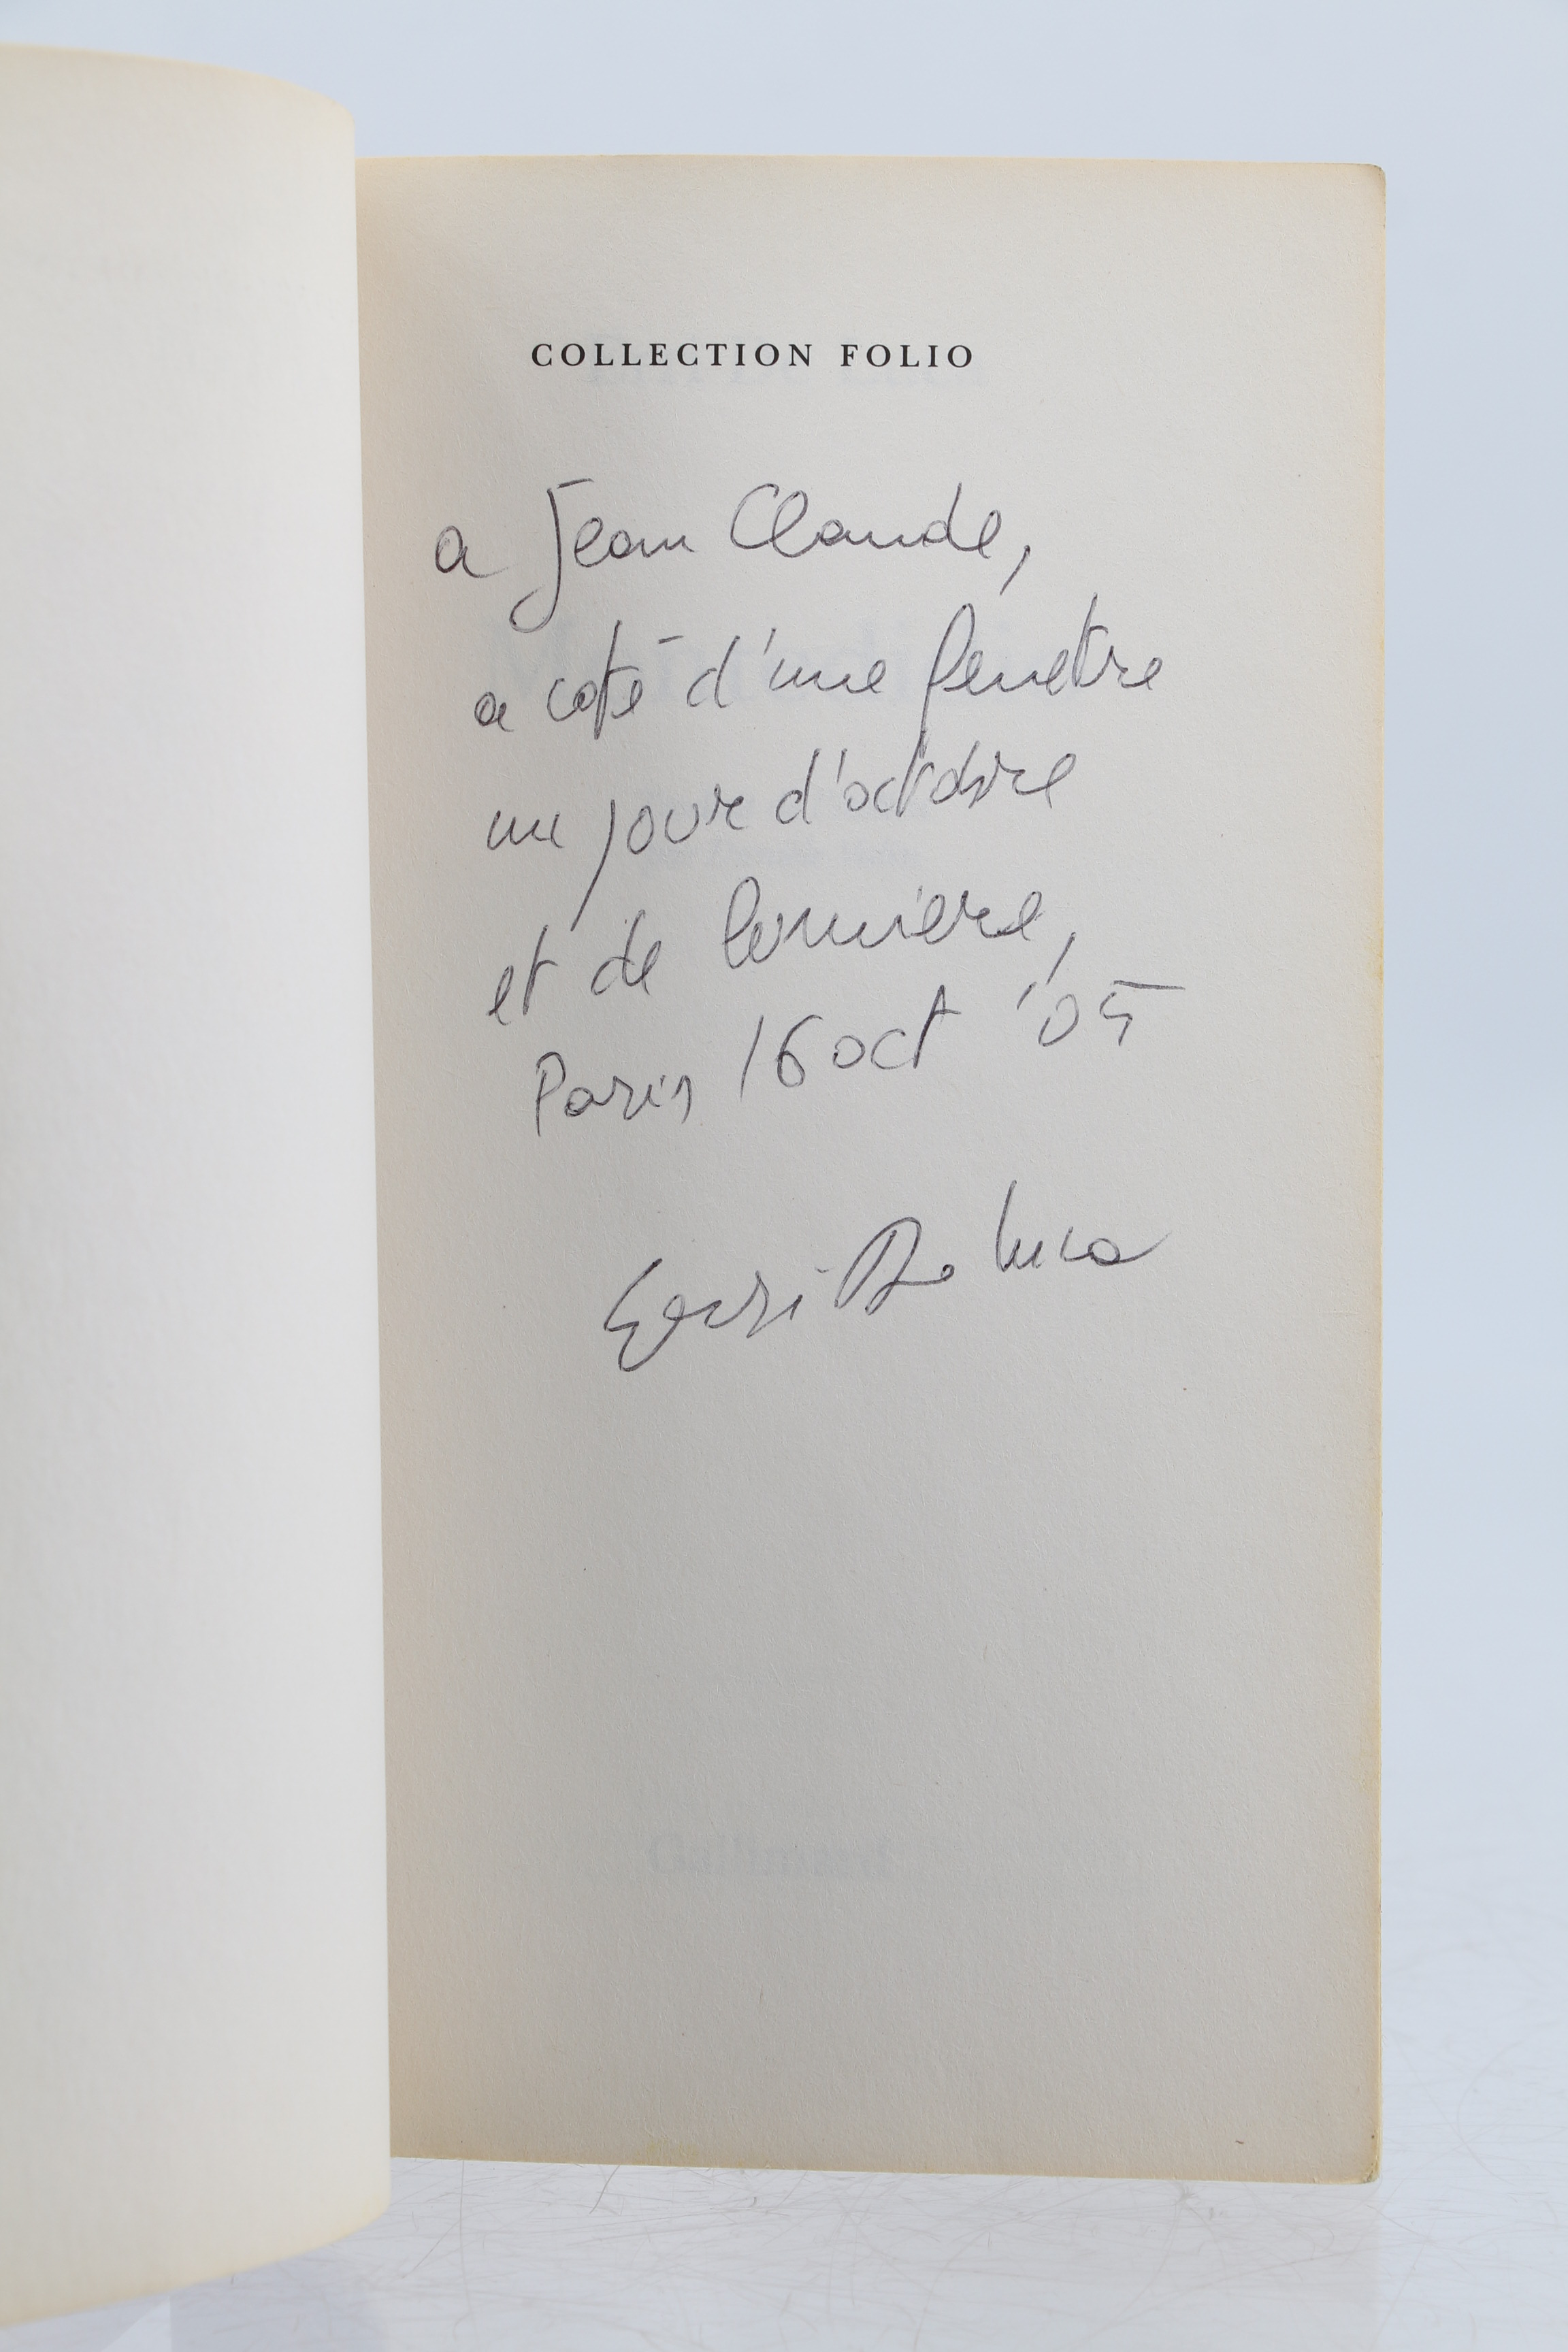 COLLECTION FOLIO
a Jean Claude,
a coté d'une fenetre
un jour d'octobre
et de lumiere,
Paris 16 oct '05
Erri De Luca
Gallimard